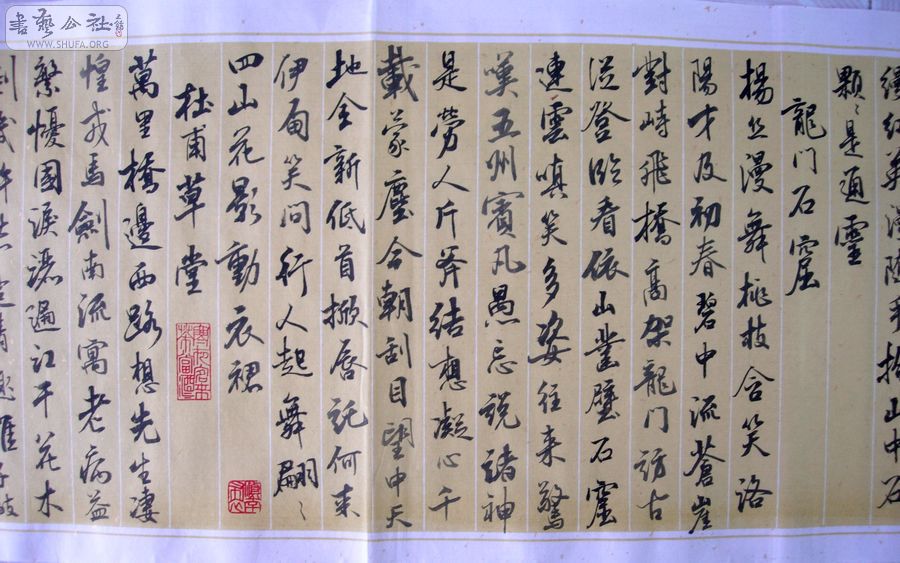 書藝公社
WWW.SHUFA.ORG
山中石
顆〻是通靈
龍门石窟
揚丝漫舞桃枝含笑洛
陽才及初春碧中流蒼崖
對峙飛橋高架龍门訪古
登臨看依山凿壁石窟
連雲嗔笑多姿往来驚
嘆五州賓凡愚忘説諸神
是勞人斤斧結想凝心千
載蒙塵今朝刮目望中天
地全新低首掀唇託何来
伊甸笑问行人起舞翩〻
四山花影動衣裙
杜甫草堂
萬里橋邊西路想先生凄
惶戎馬劍南流寓老病益
繁憂國淚灑遍江干花木